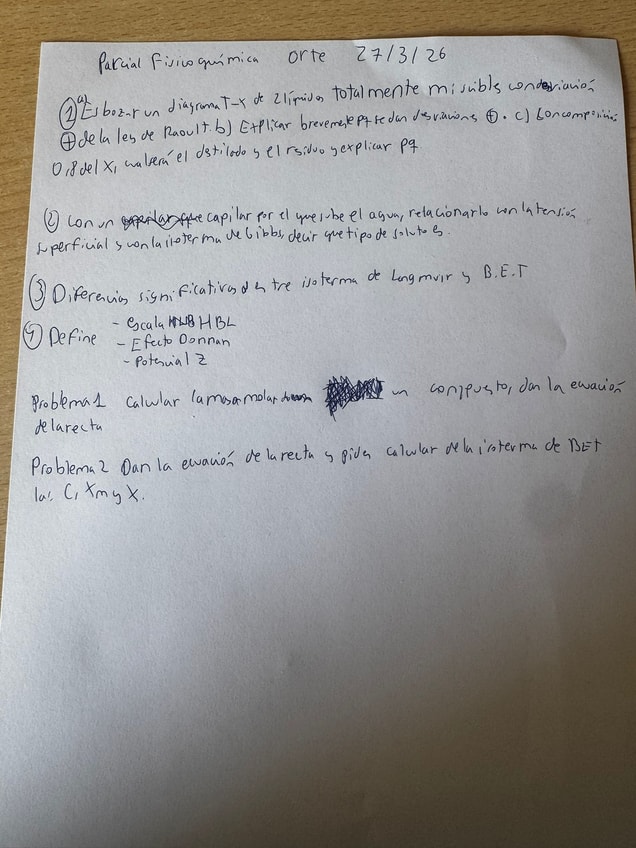 Parcial Fisicoquímica orte 27/3/26
① a) Esbozar un diagrama T-x de 2 líquidos totalmente miscibles con desviación
⊕ de la ley de Raoult. b) Explicar brevemente pq se dan desviaciones ⊕. c) Con composición
0,8 del X, cual será el destilado y el residuo y explicar pq
② Con un capilar por el que sube el agua, relacionarlo con la tensión
superficial y con la isoterma de Gibbs, decir que tipo de soluto es.
③ Diferencias significativas entre isoterma de Langmuir y B.E.T
④ Define - escala HBL
- Efecto Donnan
- Potencial Z
Problema 1 calcular la masa molar un compuesto, dan la ecuación
de la recta
Problema 2 Dan la ecuación de la recta y piden calcular de la isoterma de BET
las C, Xm y X.